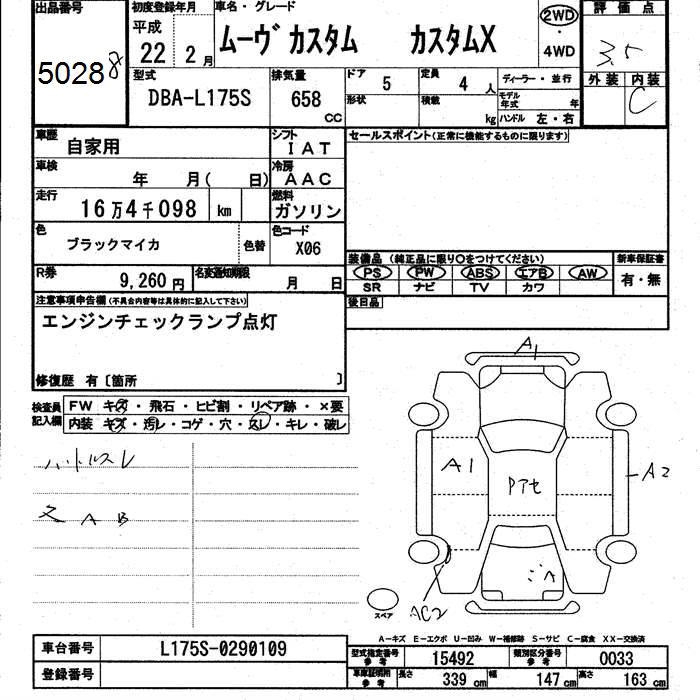 出品番号 初度登録年月 車名・グレード 2WD 評価点
平成 ムーヴ カスタム カスタムX ・ 3.5
22 2月 4WD
50288 型式 排気量 ドア 5 定員 4人 ディーラー・並行 外装 内装
DBA-L175S 658 CC 形状 積載 kg モデル年式 年 C
ハンドル 左・右
車歴 自家用 シフト IAT セールスポイント(正常に機能するものに限ります)
車検 年 月( 日) 冷房 AAC
走行 16万4千098 km 燃料 ガソリン
色 ブラックマイカ 色替 色コード X06
装備品 (純正品に限り○をつけてください) 新車保証書
R券 9,260円 名変通知期限 月 日 PS PW ABS エアB AW 有・無
SR ナビ TV カワ
注意事項申告欄(不具合内容等は具体的に記入して下さい) 後日品
エンジンチェックランプ点灯
修復歴 有〔箇所 〕
A1
検査員記入欄 FW キズ・飛石・ヒビ割・リペア跡・×要
内装 キズ・汚レ・コゲ・穴・スレ・キレ・破レ
ハンドルスレ
A1 Pアセ A2
A B
A
AC2
スペア
A-キズ E-エクボ U-凹み W-補修跡 S-サビ C-腐食 XX-交換済
車台番号 L175S-0290109 型式指定番号 参考 15492 類別区分番号 参考 0033
登録番号 車庫証明用 参考 長さ 339cm 幅 147cm 高さ 163cm